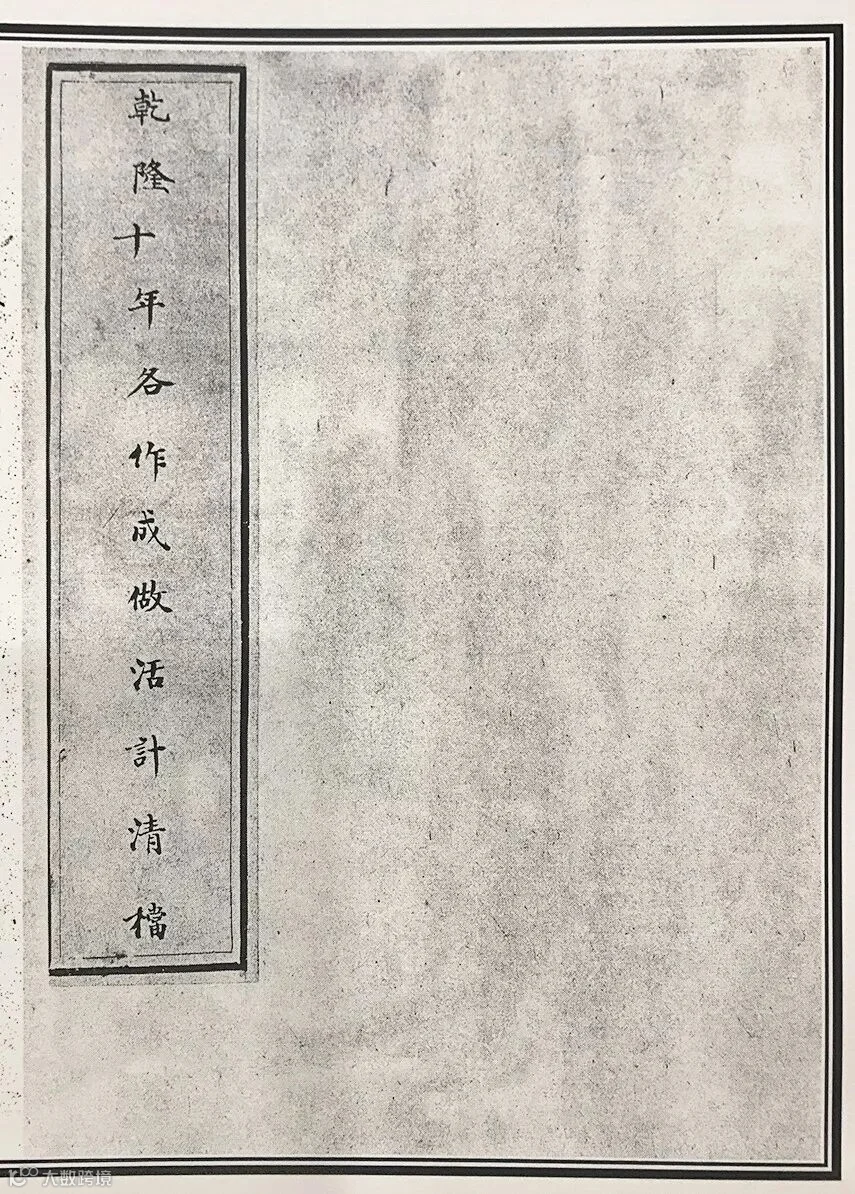 乾隆十年各作成做活計清檔
大数跨境